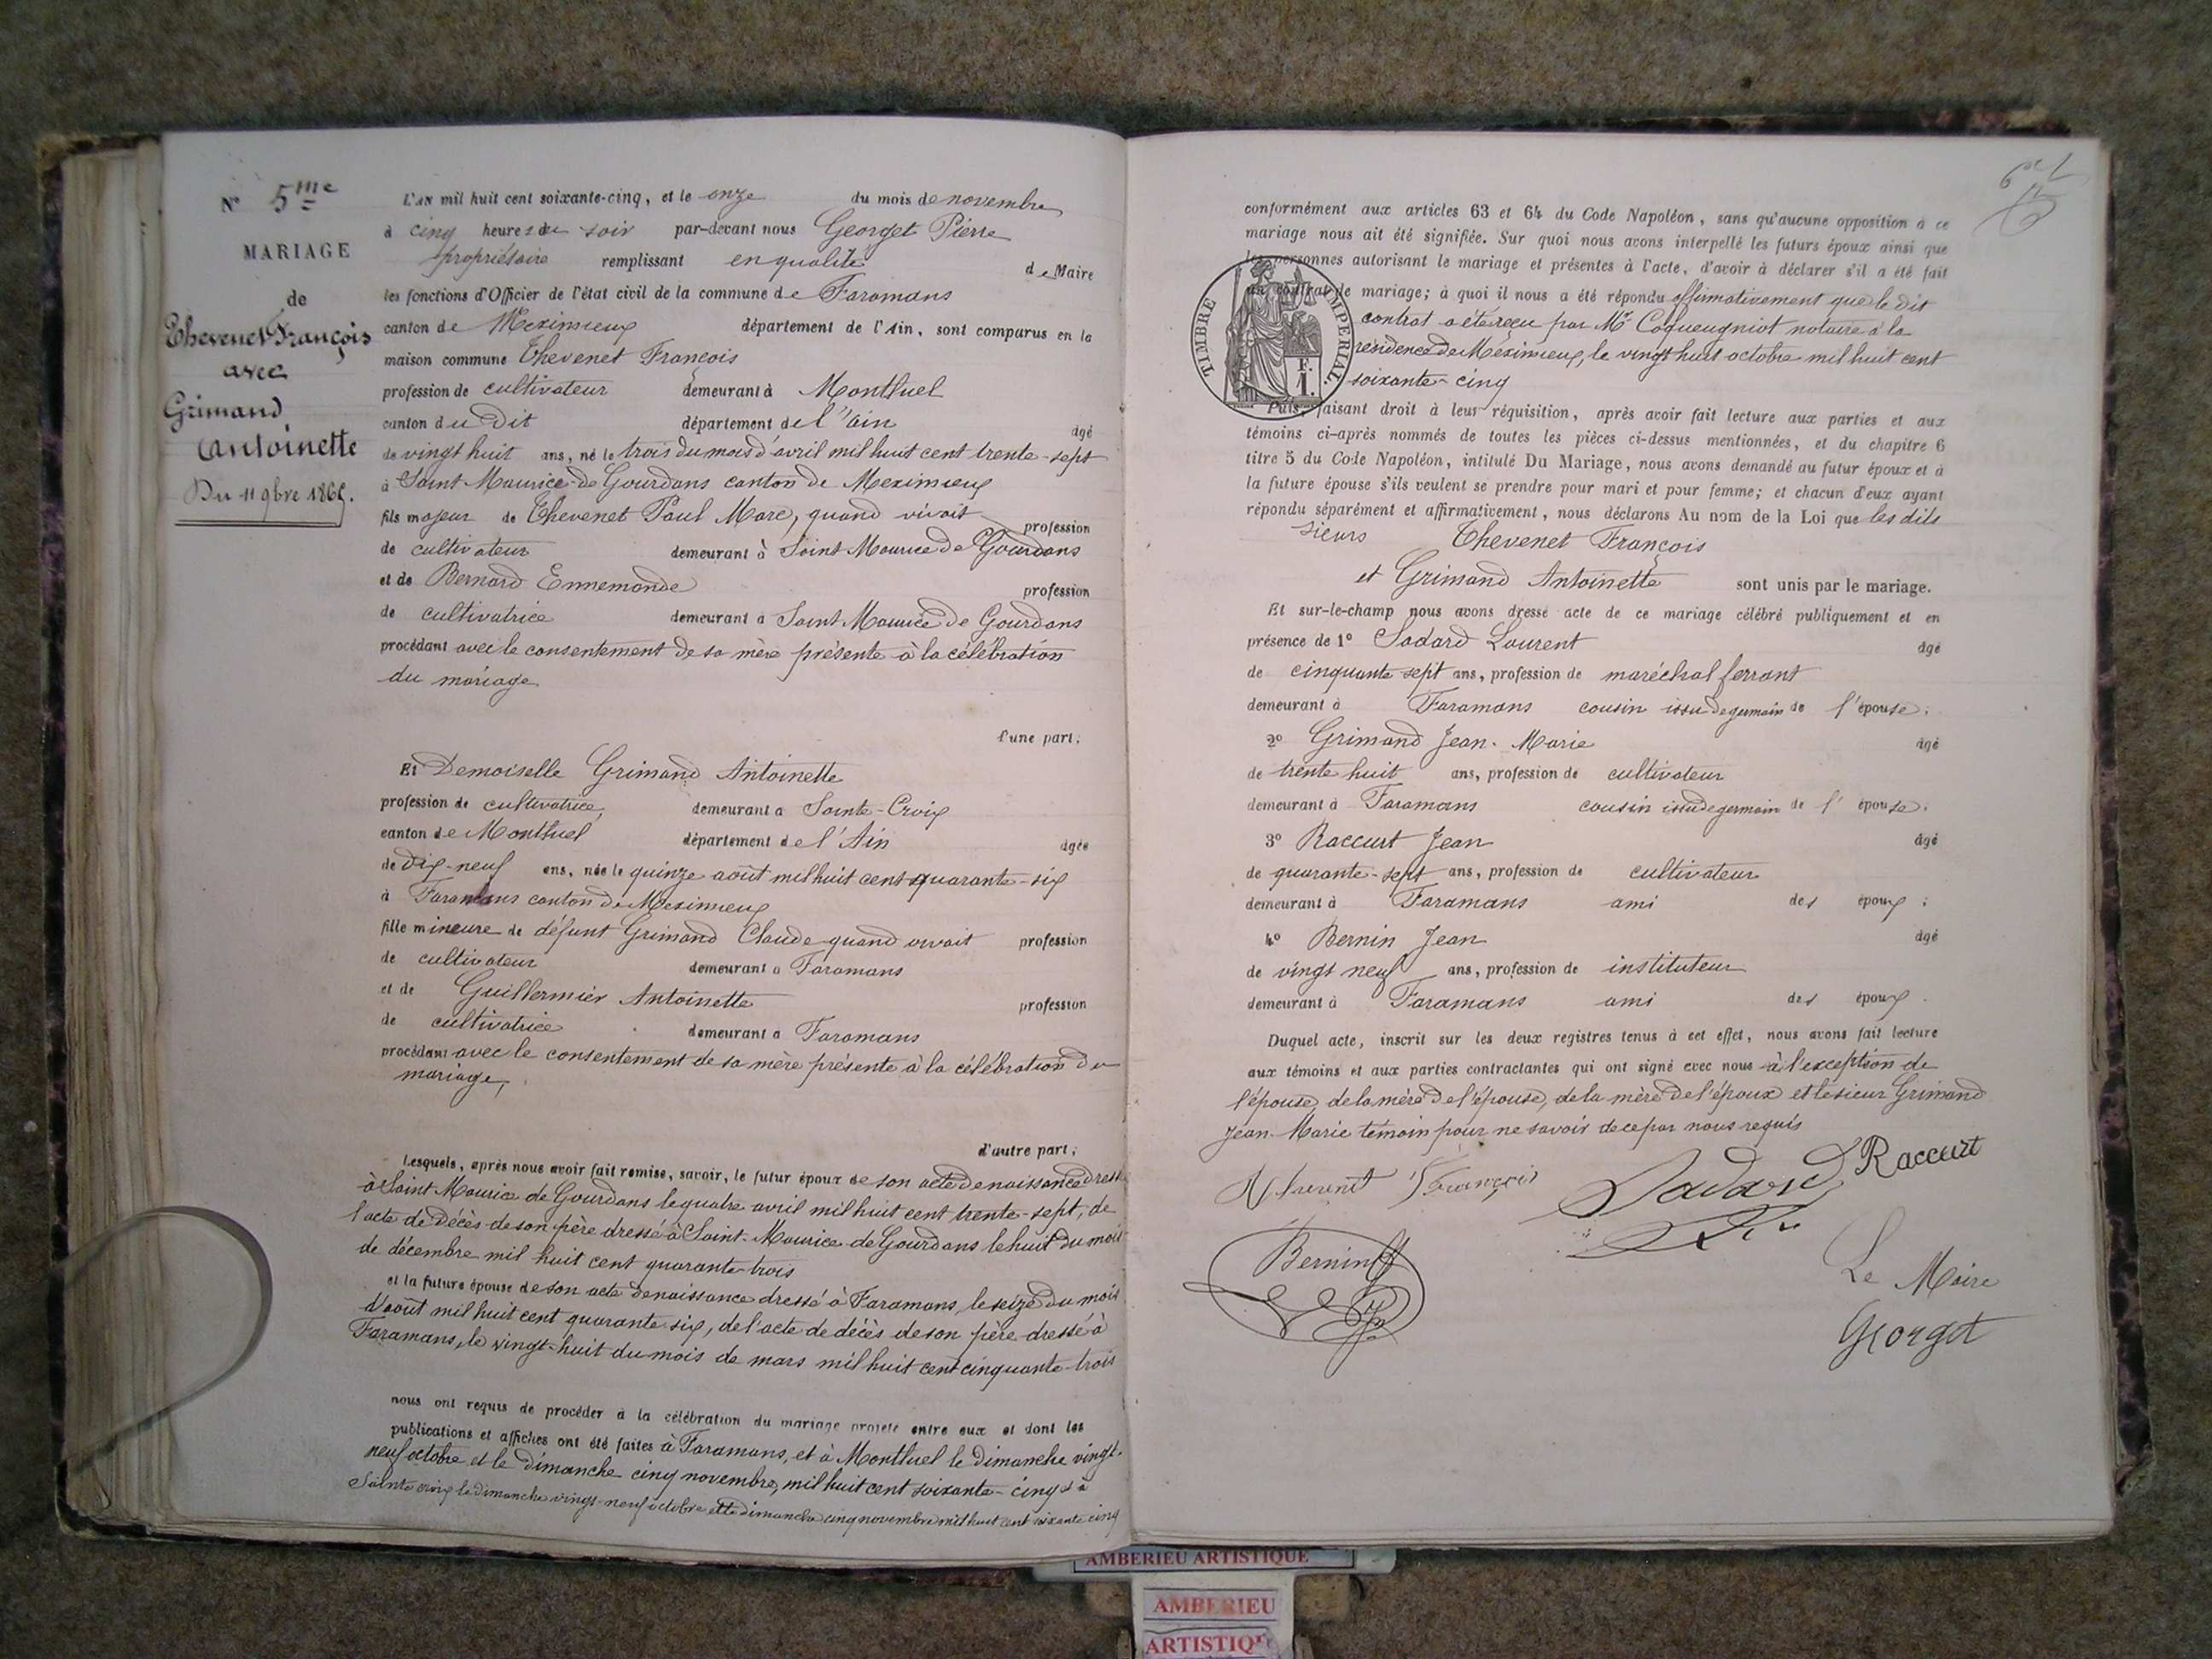 N° 5me
MARIAGE
de
Thevenet François
avec
Grimand
Antoinette
Du 11 9bre 1865.
L'AN mil huit cent soixante-cinq, et le onze du mois de novembre
à cinq heures du soir par-devant nous Georget Pierre
propriétaire remplissant en qualité de Maire
les fonctions d'Officier de l'état civil de la commune de Faramans
canton de Meximieux département de l'Ain, sont comparus en la
maison commune Thevenet François
profession de cultivateur demeurant à Montluel
canton du dit département de l'ain âgé
de vingt huit ans, né le trois du mois d'avril mil huit cent trente-sept
à Saint Maurice de Gourdans canton de Meximieux
fils majeur de Thevenet Paul Marc, quand vivait profession
de cultivateur demeurant à Saint Maurice de Gourdans
et de Bernard Ennemonde profession
de cultivatrice demeurant à Saint Maurice de Gourdans
procédant avec le consentement de sa mère présente à la célébration
du mariage
d'une part;
Et Demoiselle Grimand Antoinette
profession de cultivatrice, demeurant à Sainte-Croix
canton de Montluel département de l'Ain âgée
de dix-neuf ans, née le quinze août mil huit cent quarante-six
à Faramans canton de Meximieux
fille mineure de défunt Grimand Claude quand vivait profession
de cultivateur demeurant à Faramans
et de Guillermier Antoinette profession
de cultivatrice demeurant à Faramans
procédant avec le consentement de sa mère présente à la célébration du
mariage,
d'autre part;
Lesquels, après nous avoir fait remise, savoir, le futur époux de son acte de naissance dressé
à Saint Maurice de Gourdans le quatre avril mil huit cent trente-sept, de
l'acte de décès de son père dressé à Saint-Maurice de Gourdans le huit du mois
de décembre mil huit cent quarante-trois
et la future épouse de son acte de naissance dressé à Faramans, le seize du mois
d'août mil huit cent quarante six, de l'acte de décès de son père dressé à
Faramans, le vingt-huit du mois de mars mil huit cent cinquante-trois
nous ont requis de procéder à la célébration du mariage projeté entre eux et dont les
publications et affiches ont été faites à Faramans, et à Montluel le dimanche vingt-
neuf octobre et le dimanche cinq novembre, mil huit cent soixante-cinq et à
Sainte croix le dimanche vingt-neuf octobre et le dimanche cinq novembre mil huit cent soixante cinq
conformément aux articles 63 et 64 du Code Napoléon, sans qu'aucune opposition à ce
mariage nous ait été signifiée. Sur quoi nous avons interpellé les futurs époux ainsi que
les personnes autorisant le mariage et présentes à l'acte, d'avoir à déclarer s'il a été fait
un contrat de mariage; à quoi il nous a été répondu affirmativement que le dit
contrat a été reçu par Mr. Coqueugniot notaire à la
résidence de Méximieux, le vingt huit octobre mil huit cent
soixante-cinq
TIMBRE IMPERIAL.
F.
1.
Puis, faisant droit à leur réquisition, après avoir fait lecture aux parties et aux
témoins ci-après nommés de toutes les pièces ci-dessus mentionnées, et du chapitre 6
titre 5 du Code Napoléon, intitulé Du Mariage, nous avons demandé au futur époux et à
la future épouse s'ils veulent se prendre pour mari et pour femme; et chacun d'eux ayant
répondu séparément et affirmativement, nous déclarons Au nom de la Loi que les dits
sieurs Thevenet François
et Grimand Antoinette sont unis par le mariage.
Et sur-le-champ nous avons dressé acte de ce mariage célébré publiquement et en
présence de 1° Sadard Laurent âgé
de cinquante sept ans, profession de maréchal ferrant
demeurant à Faramans cousin issu de germain de l'épouse;
2° Grimand Jean-Marie âgé
de trente huit ans, profession de cultivateur
demeurant à Faramans cousin issu de germain de l'épouse;
3° Raccurt Jean âgé
de quarante-sept ans, profession de cultivateur
demeurant à Faramans ami des époux;
4° Bernin Jean âgé
de vingt neuf ans, profession de instituteur
demeurant à Faramans ami des époux.
Duquel acte, inscrit sur les deux registres tenus à cet effet, nous avons fait lecture
aux témoins et aux parties contractantes qui ont signé avec nous à l'exception de
l'épouse, de la mère de l'épouse, de la mère de l'époux et le sieur Grimand
Jean-Marie témoin pour ne savoir de ce par nous requis
Thevenet François
Sadard
Raccurt
Bernin
Le Maire
Georget
AMBERIEU ARTISTIQUE
AMBERIEU
ARTISTIQUE